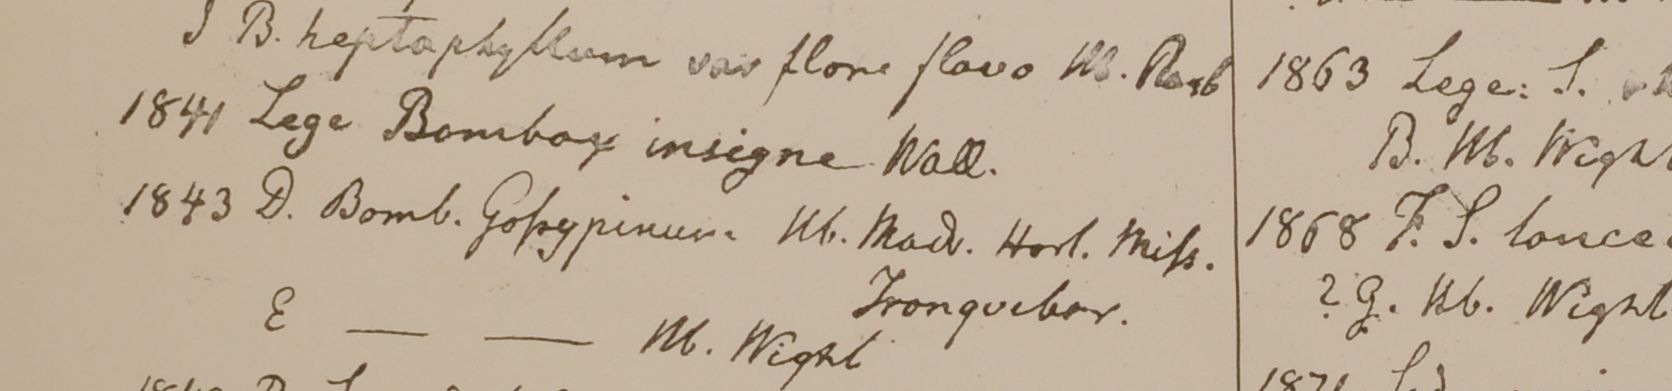 J B. heptaphyllum var flore flavo Hb. Roxb
1841 Lege Bombax insigne Wall.
1843 D. Bomb. Goſsypinum. Hb. Madr. Hort. Miſs.
Tranquebar.
E — — Hb. Wight
1863 Lege: S.
B. Hb. Wight
1868 F. S. lance
? G. Hb. Wight